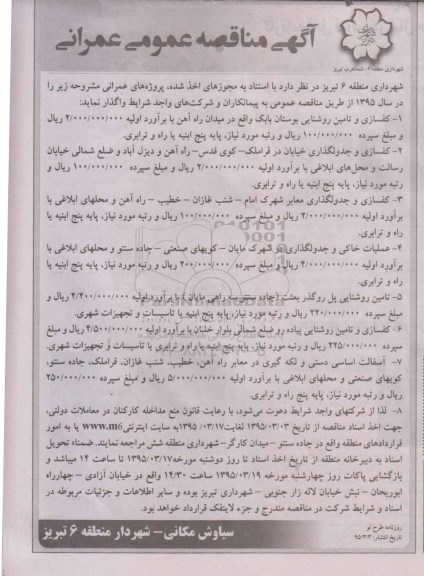 آگهی مناقصه عمومی عمرانی
شهرداری منطقه ۶ - شمالغرب تبریز
شهرداری منطقه ۶ تبریز در نظر دارد با استناد به مجوزهای اخذ شده، پروژه‌های عمرانی مشروحه زیر را
در سال ۱۳۹۵ از طریق مناقصه عمومی به پیمانکاران و شرکت‌های واجد شرایط واگذار نماید:
۱- کفسازی و تامین روشنایی بوستان بابک واقع در میدان راه آهن با برآورد اولیه ۲/۰۰۰/۰۰۰/۰۰۰ ریال
و مبلغ سپرده ۱۰۰/۰۰۰/۰۰۰ ریال و رتبه مورد نیاز، پایه پنج ابنیه یا راه و ترابری.
۲- کفسازی و جدولگذاری خیابان در قراملک- کوی قدس- راه آهن و دیزل آباد و ضلع شمالی خیابان
رسالت و محل‌های ابلاغی با برآورد اولیه ۲/۰۰۰/۰۰۰/۰۰۰ ریال و مبلغ سپرده ۱۰۰/۰۰۰/۰۰۰ ریال و
رتبه مورد نیاز، پایه پنج ابنیه یا راه و ترابری.
۳- کفسازی و جدولگذاری معابر شهرک امام - شنب غازان - خطیب - راه آهن و محلهای ابلاغی با
برآورد اولیه ۲/۰۰۰/۰۰۰/۰۰۰ ریال و مبلغ سپرده ۱۰۰/۰۰۰/۰۰۰ ریال و رتبه مورد نیاز، پایه پنج ابنیه یا
راه و ترابری.
۴- عملیات خاکی و جدولگذاری در شهرک مایان - کویهای صنعتی - جاده سنتو و محلهای ابلاغی با
برآورد اولیه ۴/۰۰۰/۰۰۰/۰۰۰ ریال و مبلغ سپرده ۲۰۰/۰۰۰/۰۰۰ ریال و رتبه مورد نیاز، پایه پنج ابنیه یا
راه و ترابری.
۵- تامین روشنایی پل روگذر بعثت (جاده سنتو سه راهی مایان) با برآورد اولیه ۴/۴۰۰/۰۰۰/۰۰۰ ریال و
مبلغ سپرده ۲۲۰/۰۰۰/۰۰۰ ریال و رتبه مورد نیاز، پایه پنج ابنیه یا تاسیسات و تجهیزات شهری.
۶- کفسازی و تامین روشنایی پیاده رو ضلع شمالی بلوار خلبان با برآورد اولیه ۴/۵۰۰/۰۰۰/۰۰۰ ریال و مبلغ
سپرده ۲۲۵/۰۰۰/۰۰۰ ریال و رتبه مورد نیاز، پایه پنج ابنیه یا راه و ترابری یا تاسیسات و تجهیزات شهری.
۷- آسفالت اساسی دستی و لکه گیری در معابر راه آهن، خطیب، شنب غازان، قراملک، جاده سنتو،
کویهای صنعتی و محلهای ابلاغی با برآورد اولیه ۵/۰۰۰/۰۰۰/۰۰۰ ریال و مبلغ سپرده ۲۵۰/۰۰۰/۰۰۰
ریال و رتبه مورد نیاز، پایه پنج راه و ترابری.
۸- لذا از شرکتهای واجد شرایط دعوت می‌شود، با رعایت قانون منع مداخله کارکنان در معاملات دولتی،
جهت اخذ اسناد مناقصه از تاریخ ۱۳۹۵/۰۳/۰۳ لغایت ۱۳۹۵/۰۳/۱۷ به سایت اینترنتی www.m6 یا به امور
قراردادهای منطقه واقع در جاده سنتو - میدان کارگر - شهرداری منطقه شش مراجعه نمایند. ضمنا، تحویل
اسناد به دبیرخانه منطقه از تاریخ اخذ اسناد تا روز دوشنبه مورخه ۱۳۹۵/۰۳/۱۷ تا ساعت ۱۴ میباشد و
بازگشایی پاکات روز چهارشنبه مورخه ۱۳۹۵/۰۳/۱۹ ساعت ۱۴/۳۰ واقع در خیابان آزادی - چهارراه
ابوریحان - نبش خیابان لاله زار جنوبی - شهرداری تبریز بوده و سایر اطلاعات و جزئیات مربوطه در
اسناد و شرایط شرکت در مناقصه مندرج و جزء لاینفک قرارداد خواهد بود.
سیاوش مکانی - شهردار منطقه ۶ تبریز
روزنامه طرح نو
تاریخ انتشار: ۹۵/۳/۳